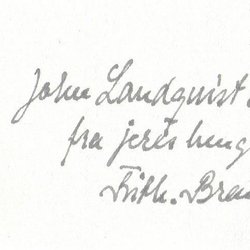 John Landquist
fra jeres
Frith. Bra